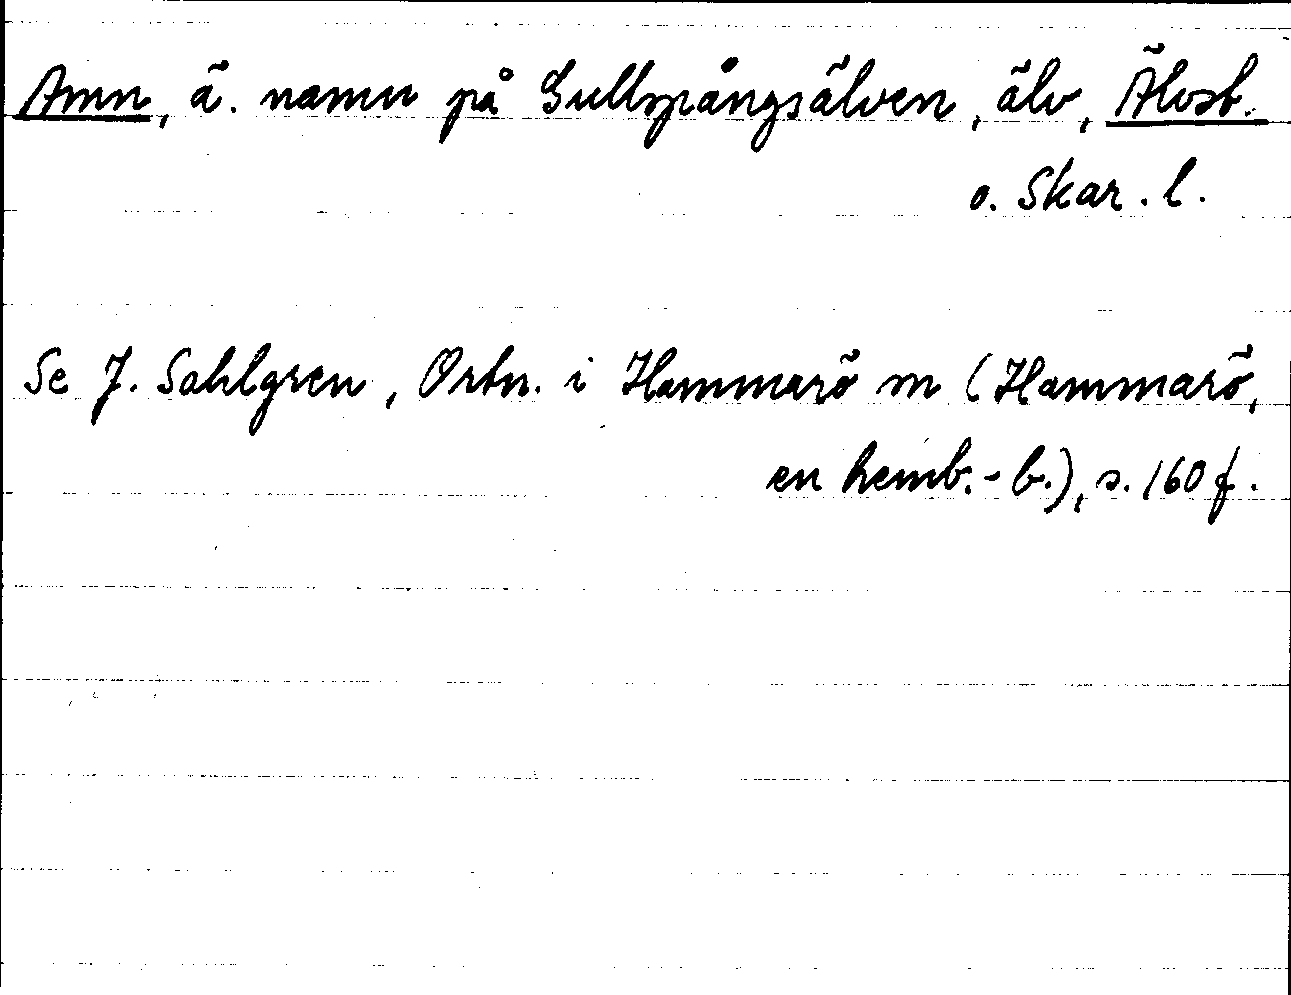 Amn, ä. namn på Gullspångsälven, älv, Älvsb.
o. Skar. l.
Se J. Sahlgren, Ortn. i Hammarö m (Hammarö,
en hemb.-b.), s. 160 f.